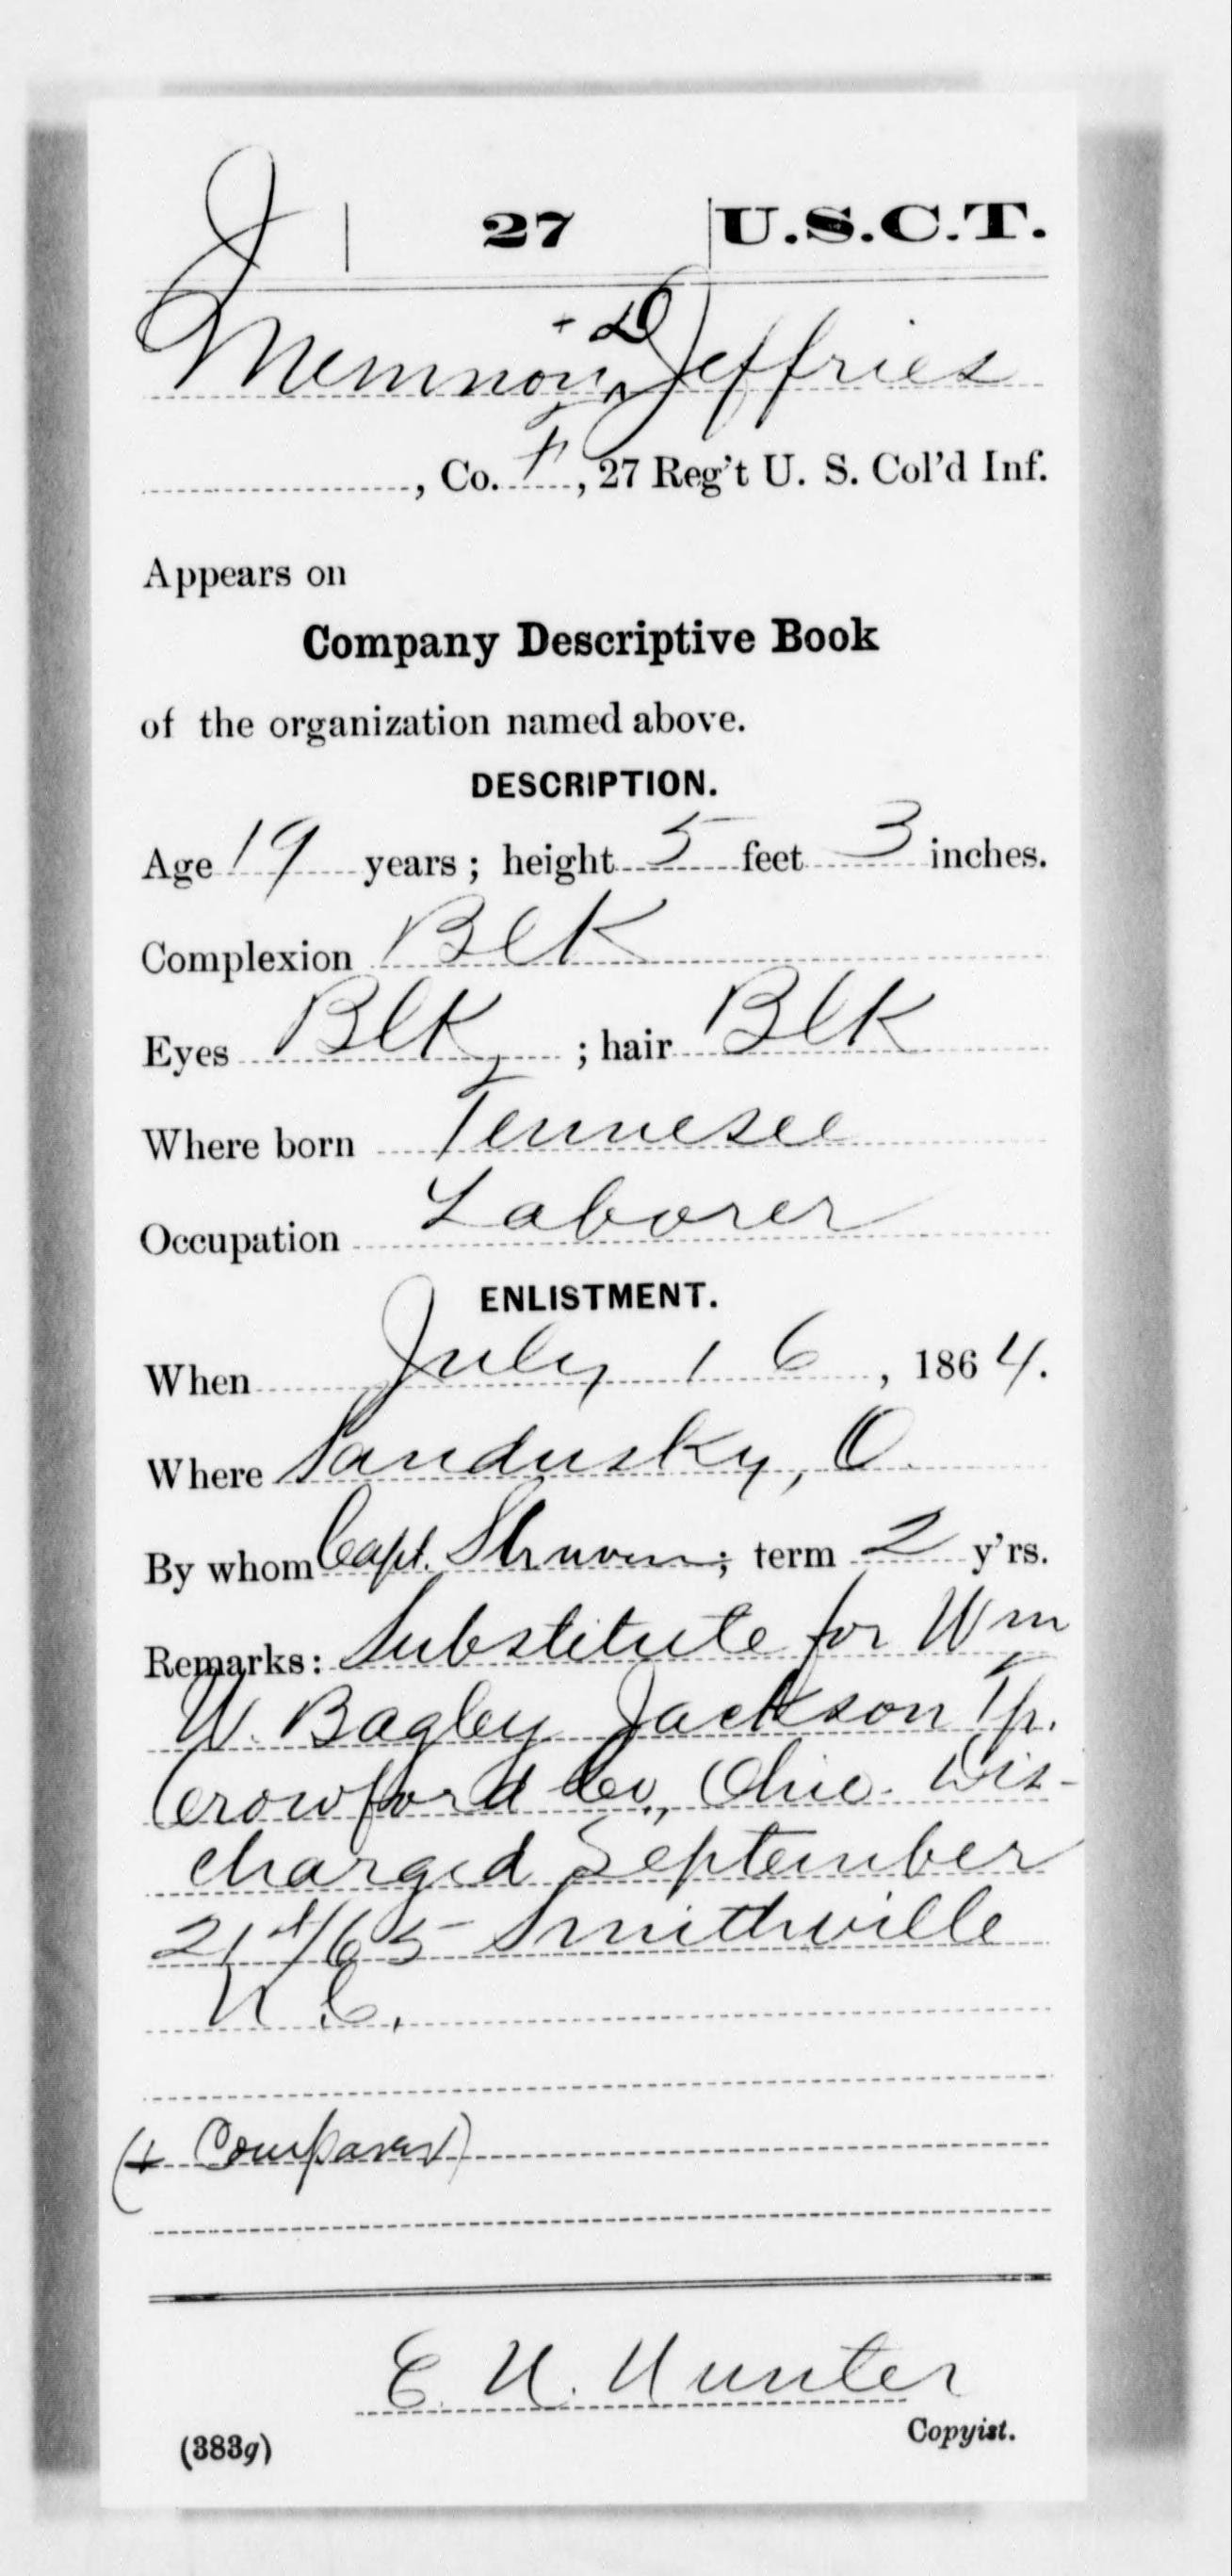 J | 27 | U.S.C.T.
+ D
Memnon ^ Jeffries
, Co. F, 27 Reg't U. S. Col'd Inf.
Appears on
Company Descriptive Book
of the organization named above.
DESCRIPTION.
Age 19 years; height 5 feet 3 inches.
Complexion Blk
Eyes Blk; hair Blk
Where born Tennesee
Occupation Laborer
ENLISTMENT.
When July 16, 1864.
Where Sandusky, O.
By whom Capt. ; term 2 y'rs.
Remarks: Substitute for Wm
W. Bagley Jackson Tp.
Crowford Co., Ohio. Dis-
charged September
21st/65 Smithville
N. C.
(+ Compared)
E. N. Hunter
Copyist.
(383g)